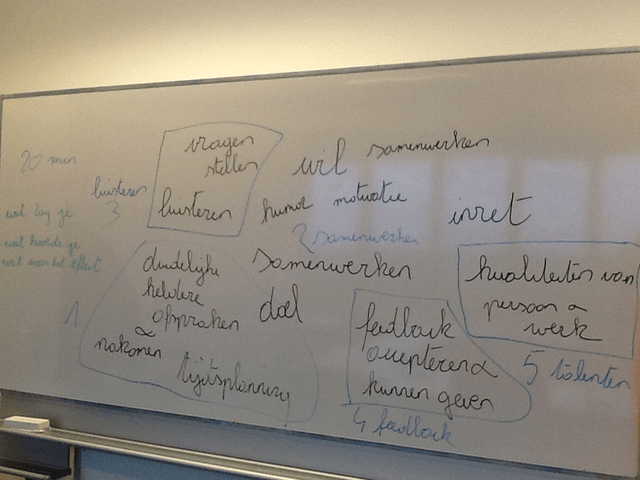 20 min
vragen
stellen
luisteren
wil samenwerken
luisteren
3
humor motivatie
inzet
wat zag je
wat hoorde je
wat was het effect
2 samenwerken
duidelijke
heldere
afspraken
&
nakomen
tijdsplanning
1
samenwerken
doel
kwaliteiten van
persoon &
werk
5 talenten
feedback
accepteren &
kunnen geven
4 feedback